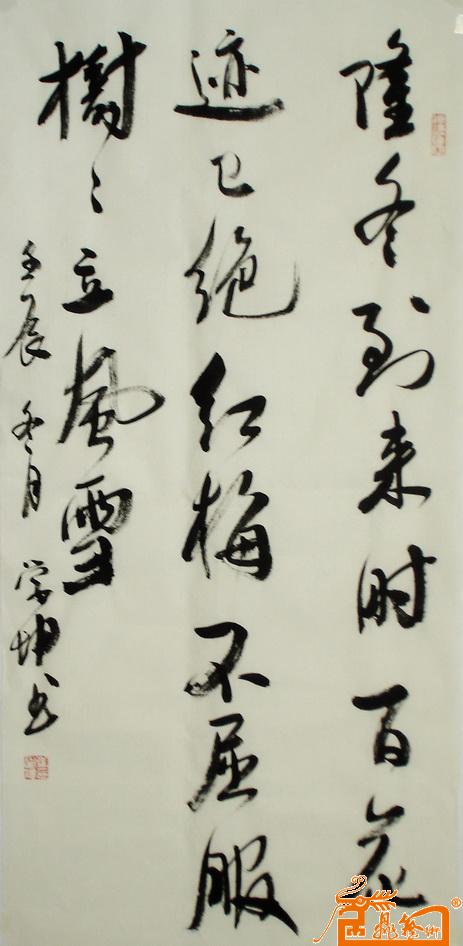 隆冬到来时百花
迹已绝红梅不屈服
樹〻立風雪
壬辰冬月学坤书